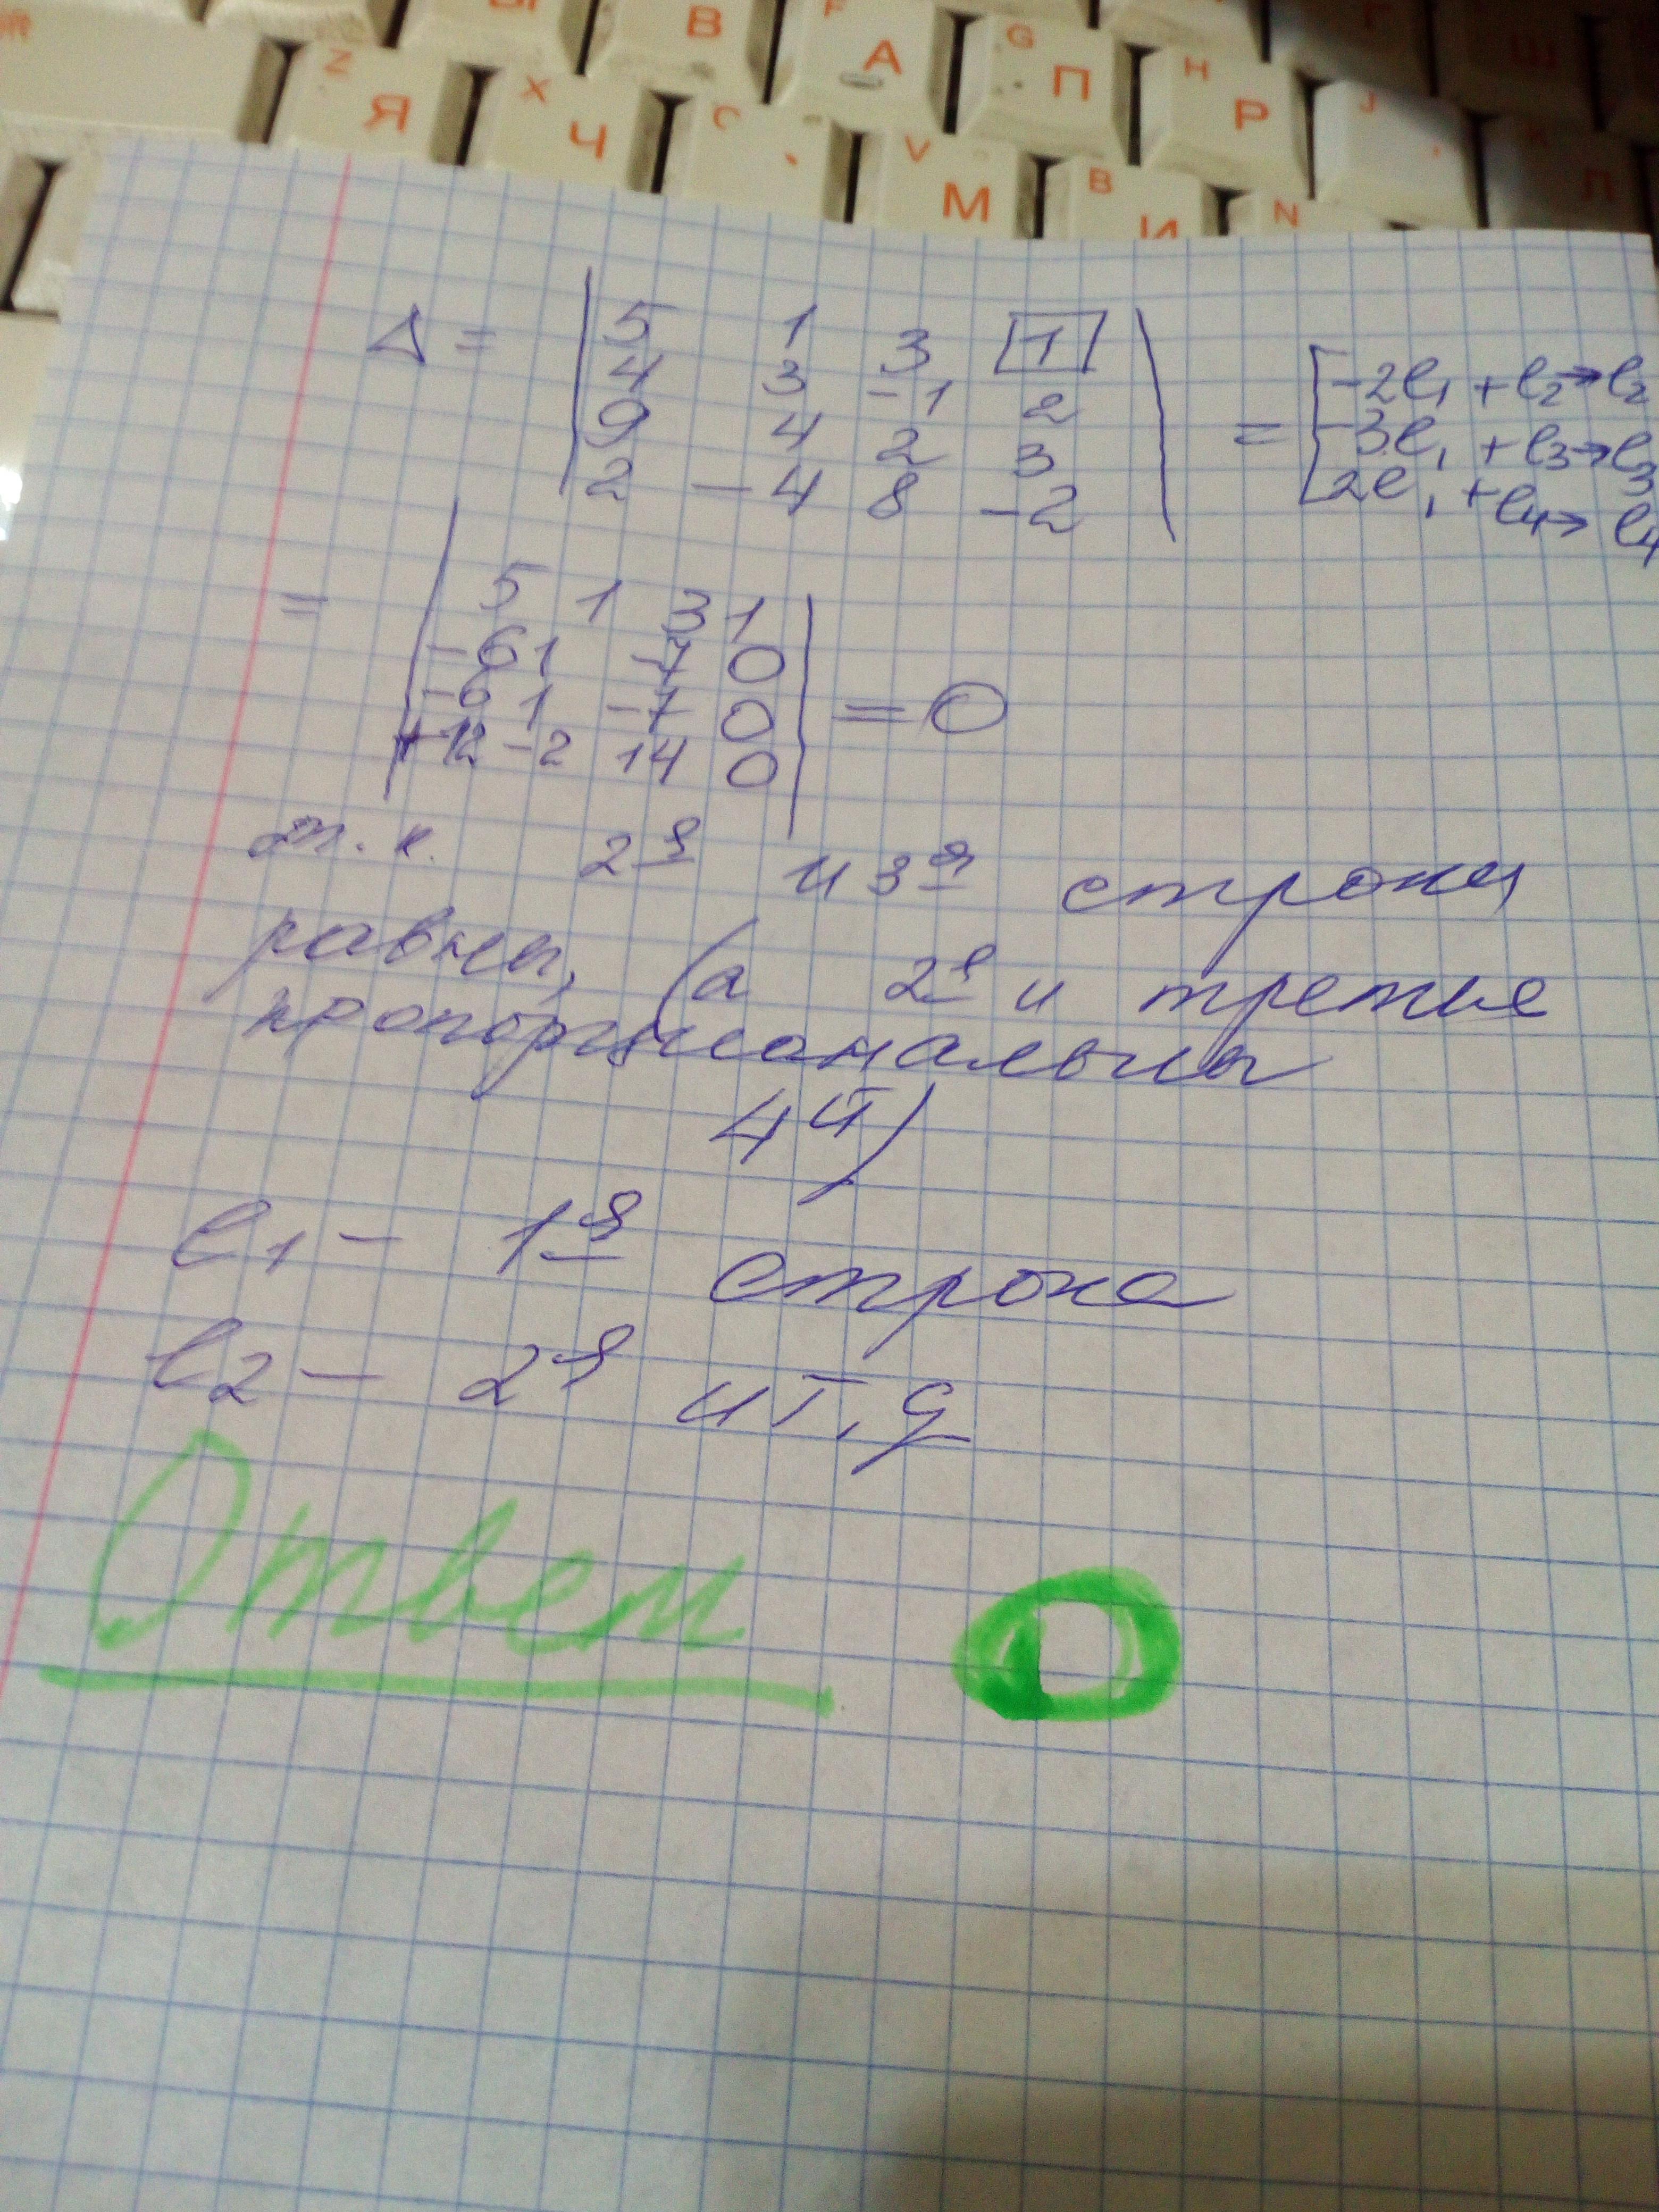 Я
В
F
А
G
П
Н
Р
Z
Я
X
Ч
C
V
М
B
И
N
J
Δ = | 5 1 3 1 |
4 3 -1 2
9 4 2 3
2 -4 8 -2
= [ -2l₁ + l₂ → l₂
-3l₁ + l₃ → l₃
2l₁ + l₄ → l₄
= | 5 1 3 1 |
-6 1 -7 0
-6 1 -7 0
+12 -2 14 0
= 0
т.к. 2я и 3я строки
равны, (а 2я и третье
пропорциональны
4й)
l₁ - 1я строка
l₂ - 2я и т.д
Ответ 0